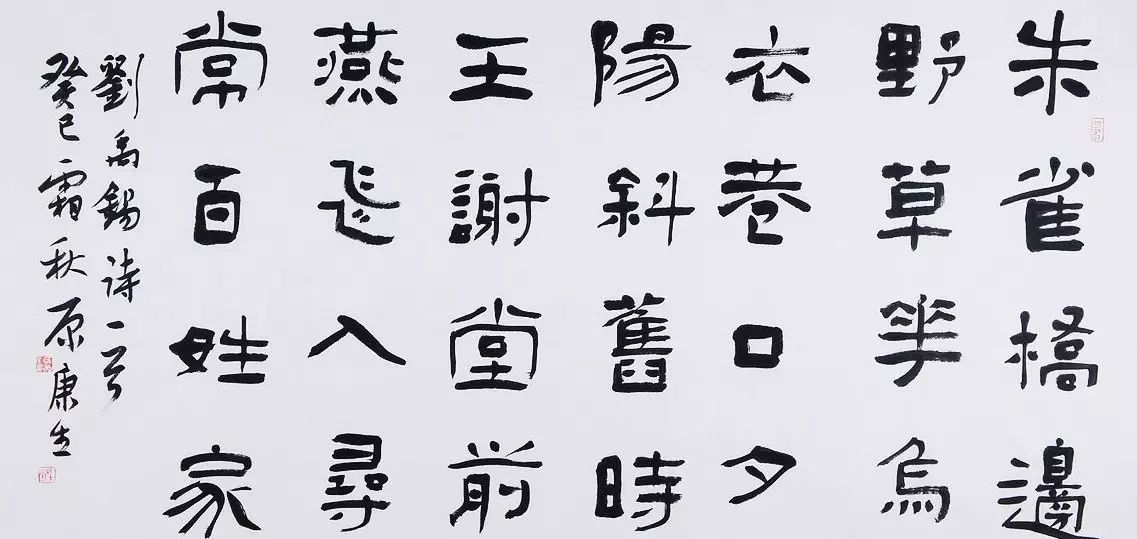 朱雀橋邊
野草花烏
衣巷口夕
陽斜舊時
王謝堂前
燕飛入尋
常百姓家
劉禹錫詩一首
癸巳霜秋原康生